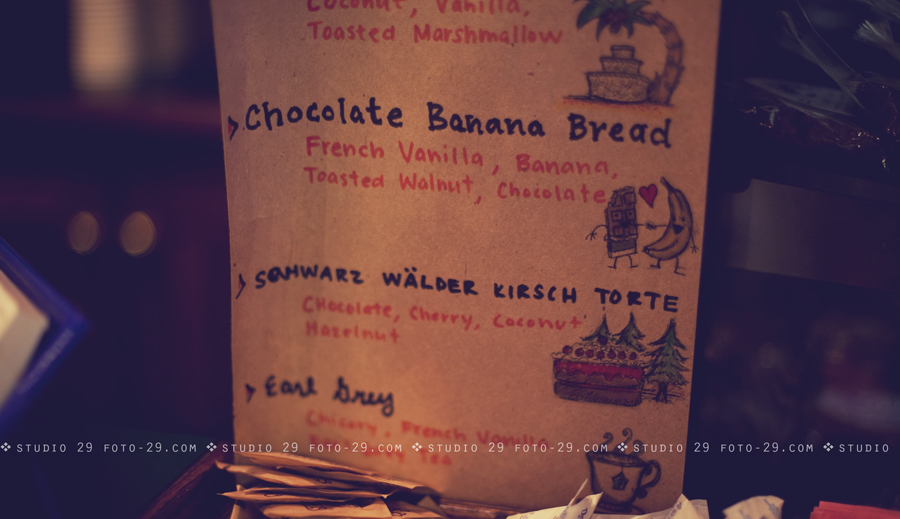 Coconut, Vanilla,
Toasted Marshmallow
Chocolate Banana Bread
French Vanilla, Banana,
Toasted Walnut, Chocolate
SCHWARZ WÄLDER KIRSCH TORTE
Chocolate, Cherry, Coconut
Hazelnut
Earl Grey
Chicory, French Vanilla
Tea
❖ STUDIO 29 FOTO-29.COM ❖ STUDIO 29 FOTO-29.COM ❖ STUDIO 29 FOTO-29.COM ❖ STUDIO 29 FOTO-29.COM ❖ STUDIO 29